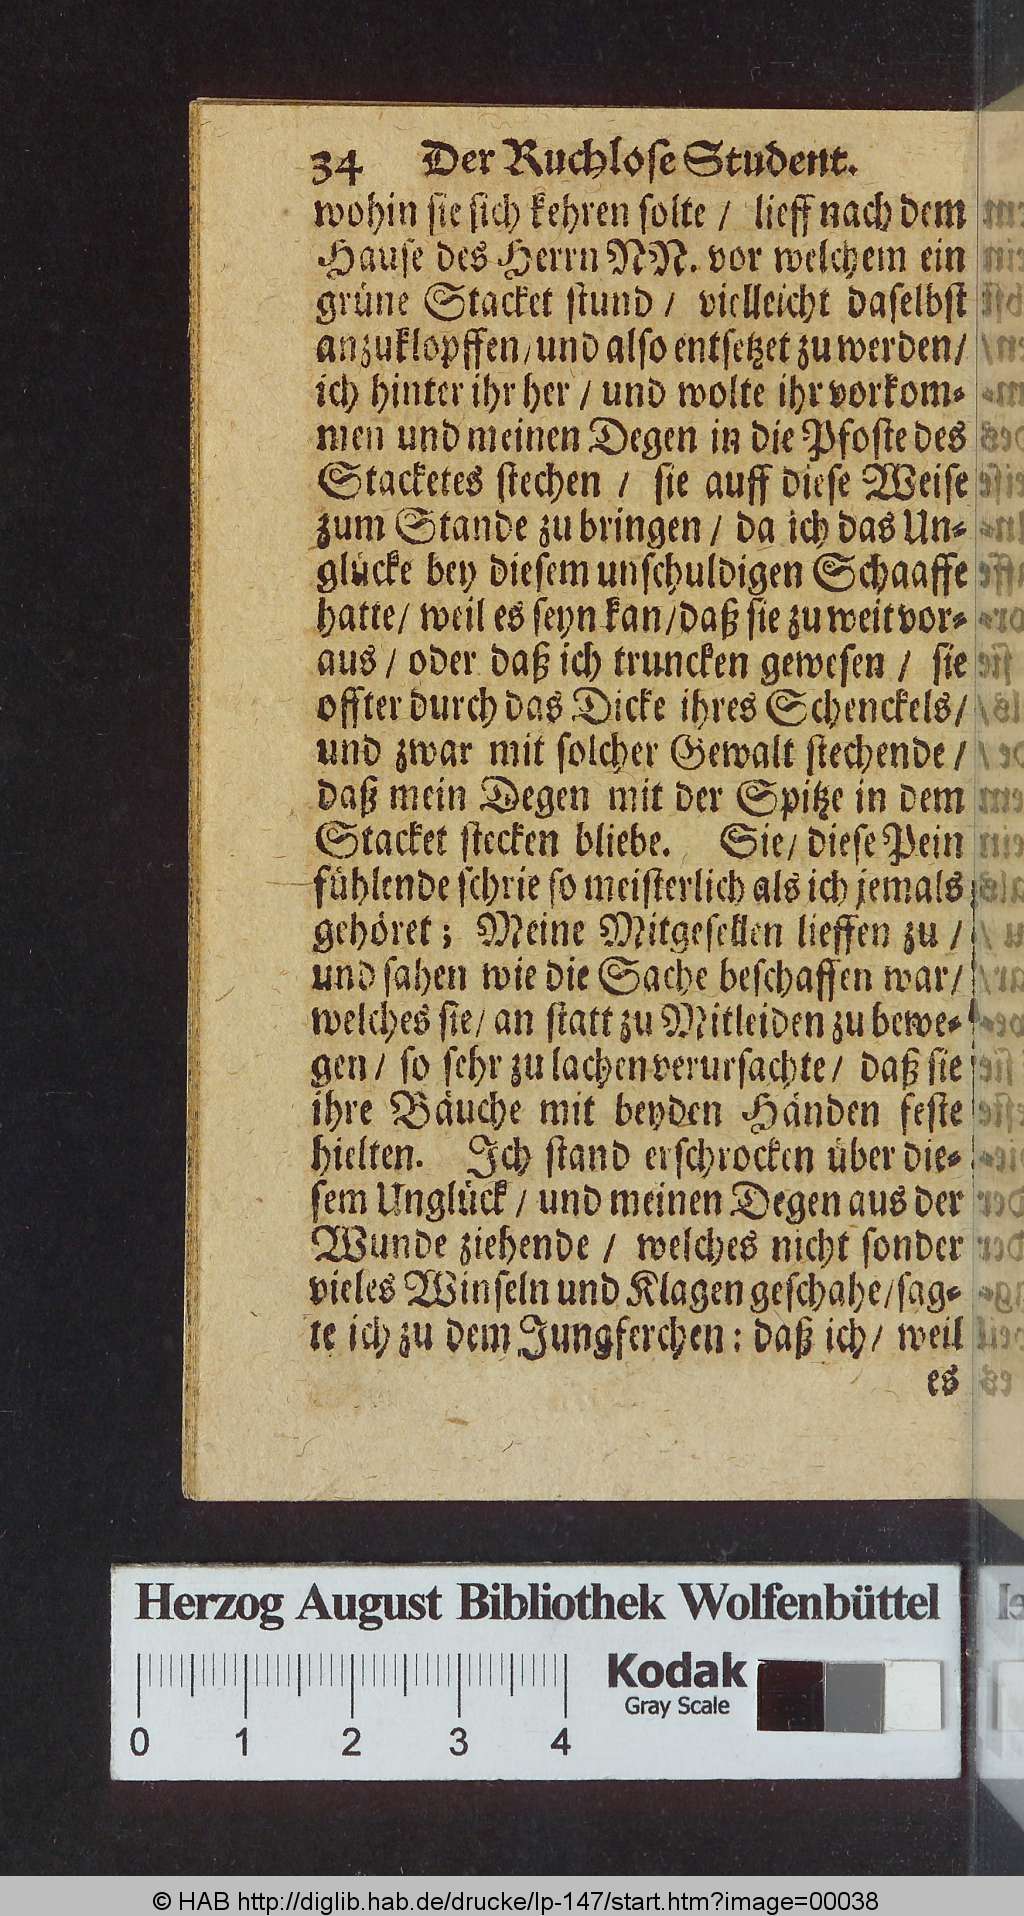 34 Der Ruchlose Student.
wohin sie sich kehren solte / lieff nach dem
Hause des Herrn NN. vor welchem ein
grüne Stacket stund / vielleicht daselbst
anzuklopffen / und also entsetzet zu werden /
ich hinter ihr her / und wolte ihr vorkom-
men und meinen Degen in die Pfoste des
Stacketes stechen / sie auff diese Weise
zum Stande zu bringen / da ich das Un-
glücke bey diesem unschuldigen Schaaffe
hatte / weil es seyn kan / daß sie zu weit vor-
aus / oder daß ich truncken gewesen / sie
offter durch das Dicke ihres Schenckels /
und zwar mit solcher Gewalt stechende /
daß mein Degen mit der Spitze in dem
Stacket stecken bliebe. Sie / diese Pein
fühlende schrie so meisterlich als ich jemals
gehöret ; Meine Mitgesellen lieffen zu /
und sahen wie die Sache beschaffen war /
welches sie / an statt zu Mitleiden zu bewe-
gen / so sehr zu lachen verursachte / daß sie
ihre Bäuche mit beyden Händen feste
hielten. Ich stand erschrocken über die-
sem Unglück / und meinen Degen aus der
Wunde ziehende / welches nicht sonder
vieles Winseln und Klagen geschahe / sag-
te ich zu dem Jungferchen : daß ich / weil
es
Herzog August Bibliothek Wolfenbüttel
Kodak
Gray Scale
0 1 2 3 4
© HAB http://diglib.hab.de/drucke/lp-147/start.htm?image=00038